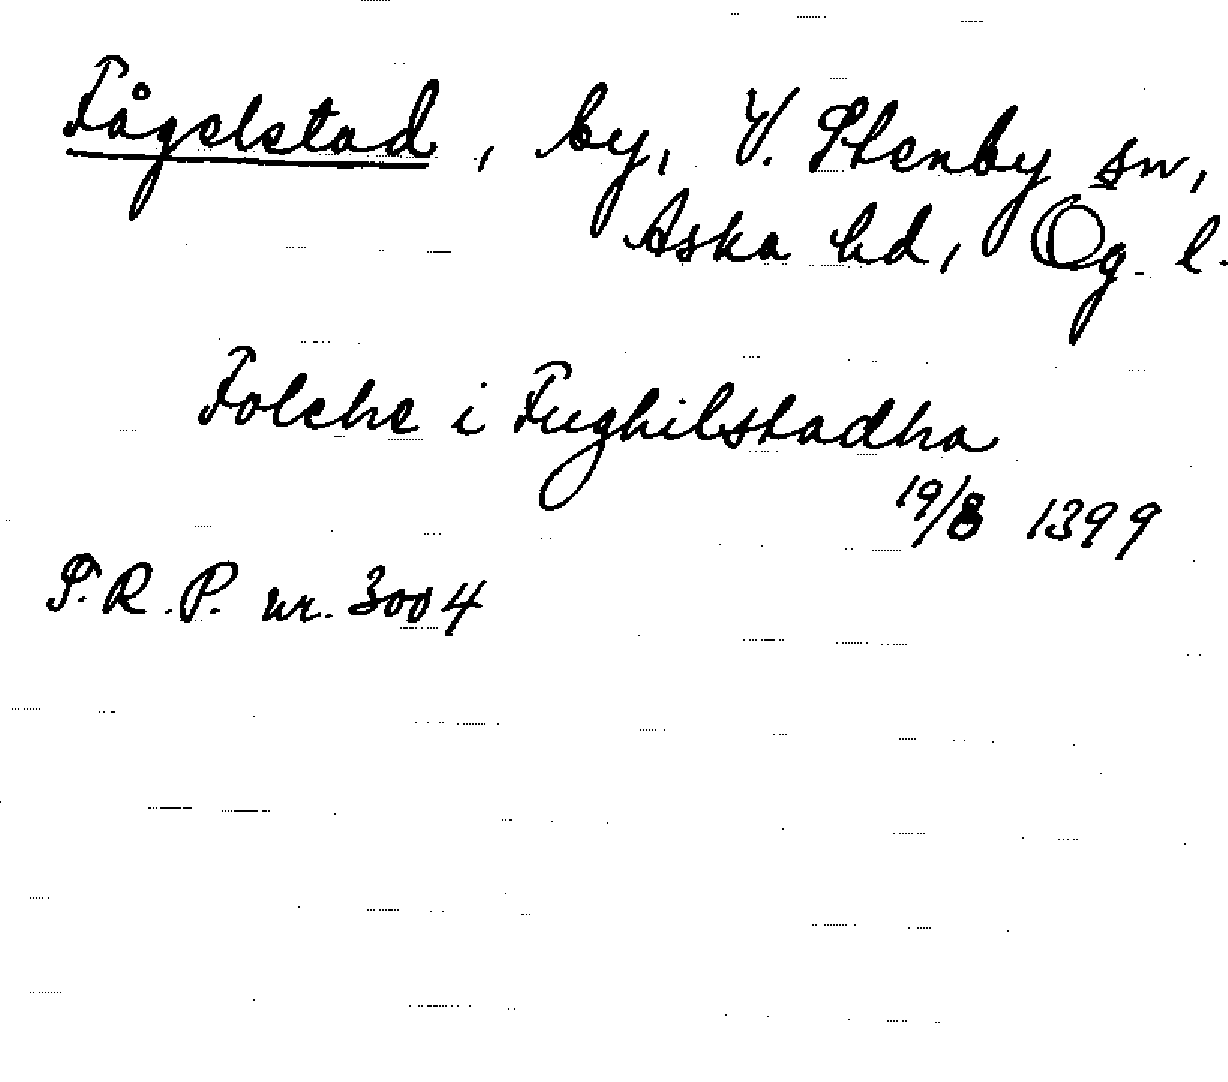 Fågelstad, by, V. Stenby sn,
Aska hd, Ög. l.
Folche i Fughilstadha
19/8 1399
S.R.P. nr. 3004